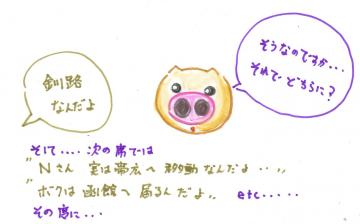 釧路
なんだよ
そうなのですか・・・
それで どちらに?
そして・・・・次の席では
"Nさん 実は帯広へ移動なんだよ・・・"
"ボクは函館へ居るんだよ" etc・・・・・
その度に・・・